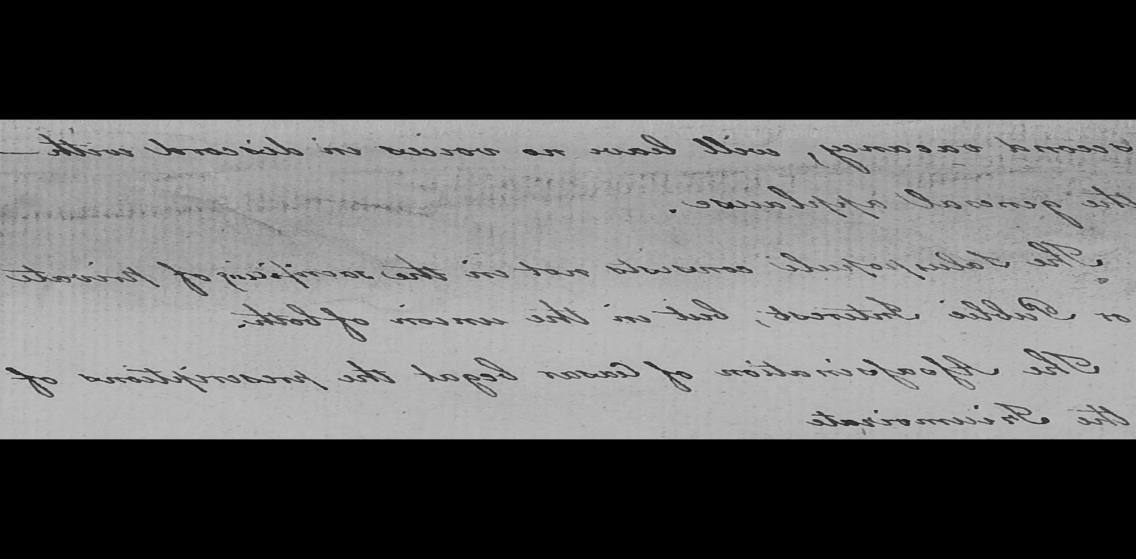 second vacancy, will leave no voices in discord with
the general applause.
The Salus populi consists not in the sacrificing of private
or Public Interest; but in the union of both.
The Assassination of Cæsar begat the proscriptions of
the Triumvirate